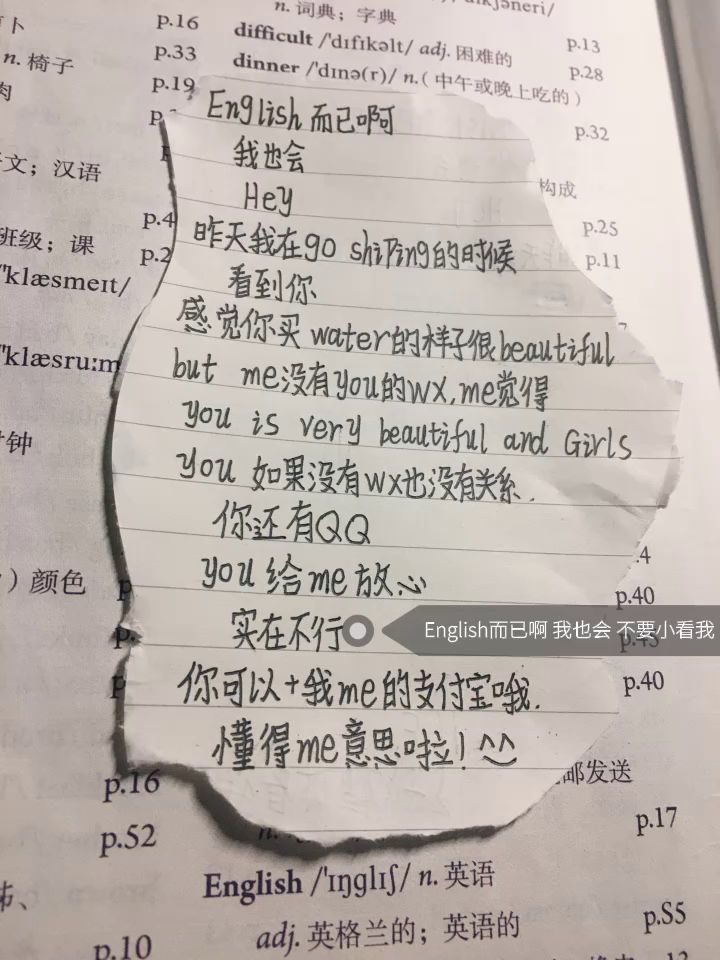 n. 词典；字典
difficult /'dɪfɪkəlt/ adj. 困难的
p.13
dinner /'dɪnə(r)/ n.( 中午或晚上吃的 )
p.28
p.16
n. 椅子
p.33
p.19
p.32
English 而已啊
我也会
Hey
构成
文；汉语
p.4
p.25
班级；课
p.2
昨天我在go shiping的时候
p.11
/'klæsmeɪt/
看到你
感觉你买 water的样子很beautiful
'klæsru:m
but me没有you的wx,me觉得
you is very beautiful and Girls
钟
you 如果没有wx也没有关系.
你还有QQ
.4
) 颜色
you 给me放心
p.40
实在不行
English而已啊 我也会 不要小看我
你可以+我me的支付宝哦.
p.40
懂得me意思啦! ^^
邮发送
p.16
p.17
p.52
English /'ɪŋglɪʃ/ n. 英语
adj. 英格兰的；英语的
p.S5
p.10